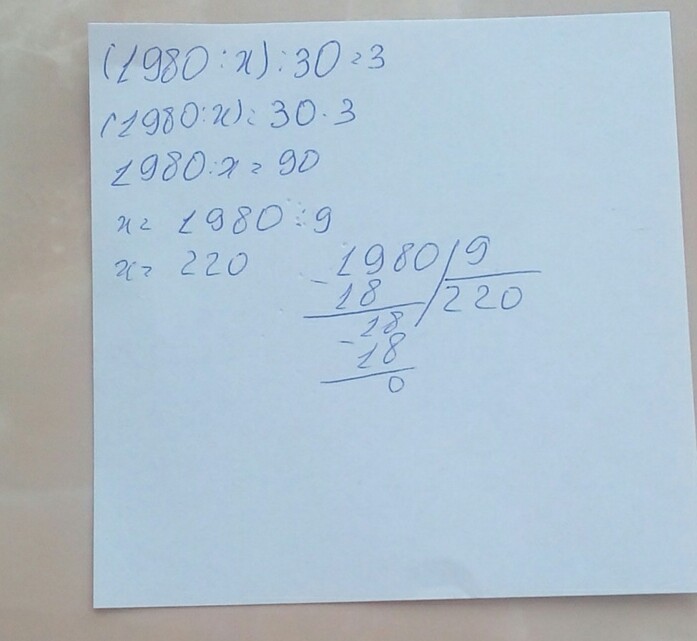 (1980:x):30=3
(1980:x)=30·3
1980:x=90
x=1980:9
x=220
1980 9
-18 220
18
-18
0